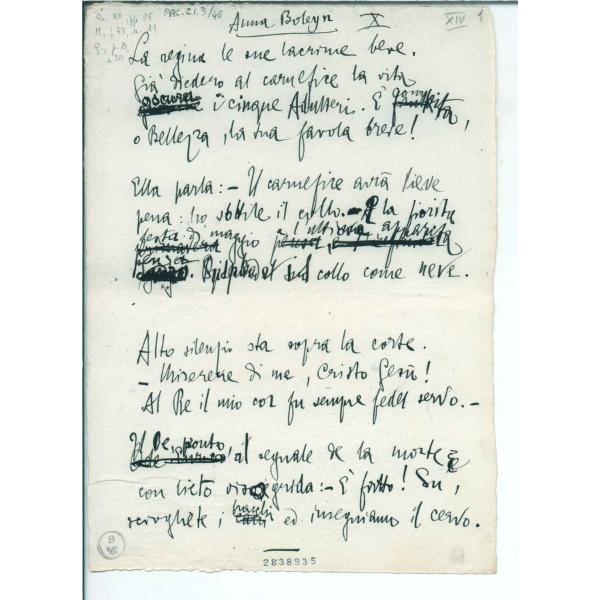 Anna Boleyn X XIV 1
ARC. 21.3/46
La regina le sue lacrime beve.
Già diedero al carnefice la vita
oscura i cinque Adulteri. È
o Bellezza, la tua favola breve!
Ella parla: – Il carnefice avrà lieve
pena: ho sottile il collo. – E la fiorita
festa di maggio pensa, l'ultima apparita
senza collo come neve.
Alto silenzio sta sopra la corte.
– Miserere di me, Cristo Gesù!
Al Re il mio cor fu sempre fedel servo. –
Il Re, pronto, al segnale de la morte
con lieto viso grida: – È fatto! Su,
sciogliete i bracchi ed inseguiamo il cervo.
2838935